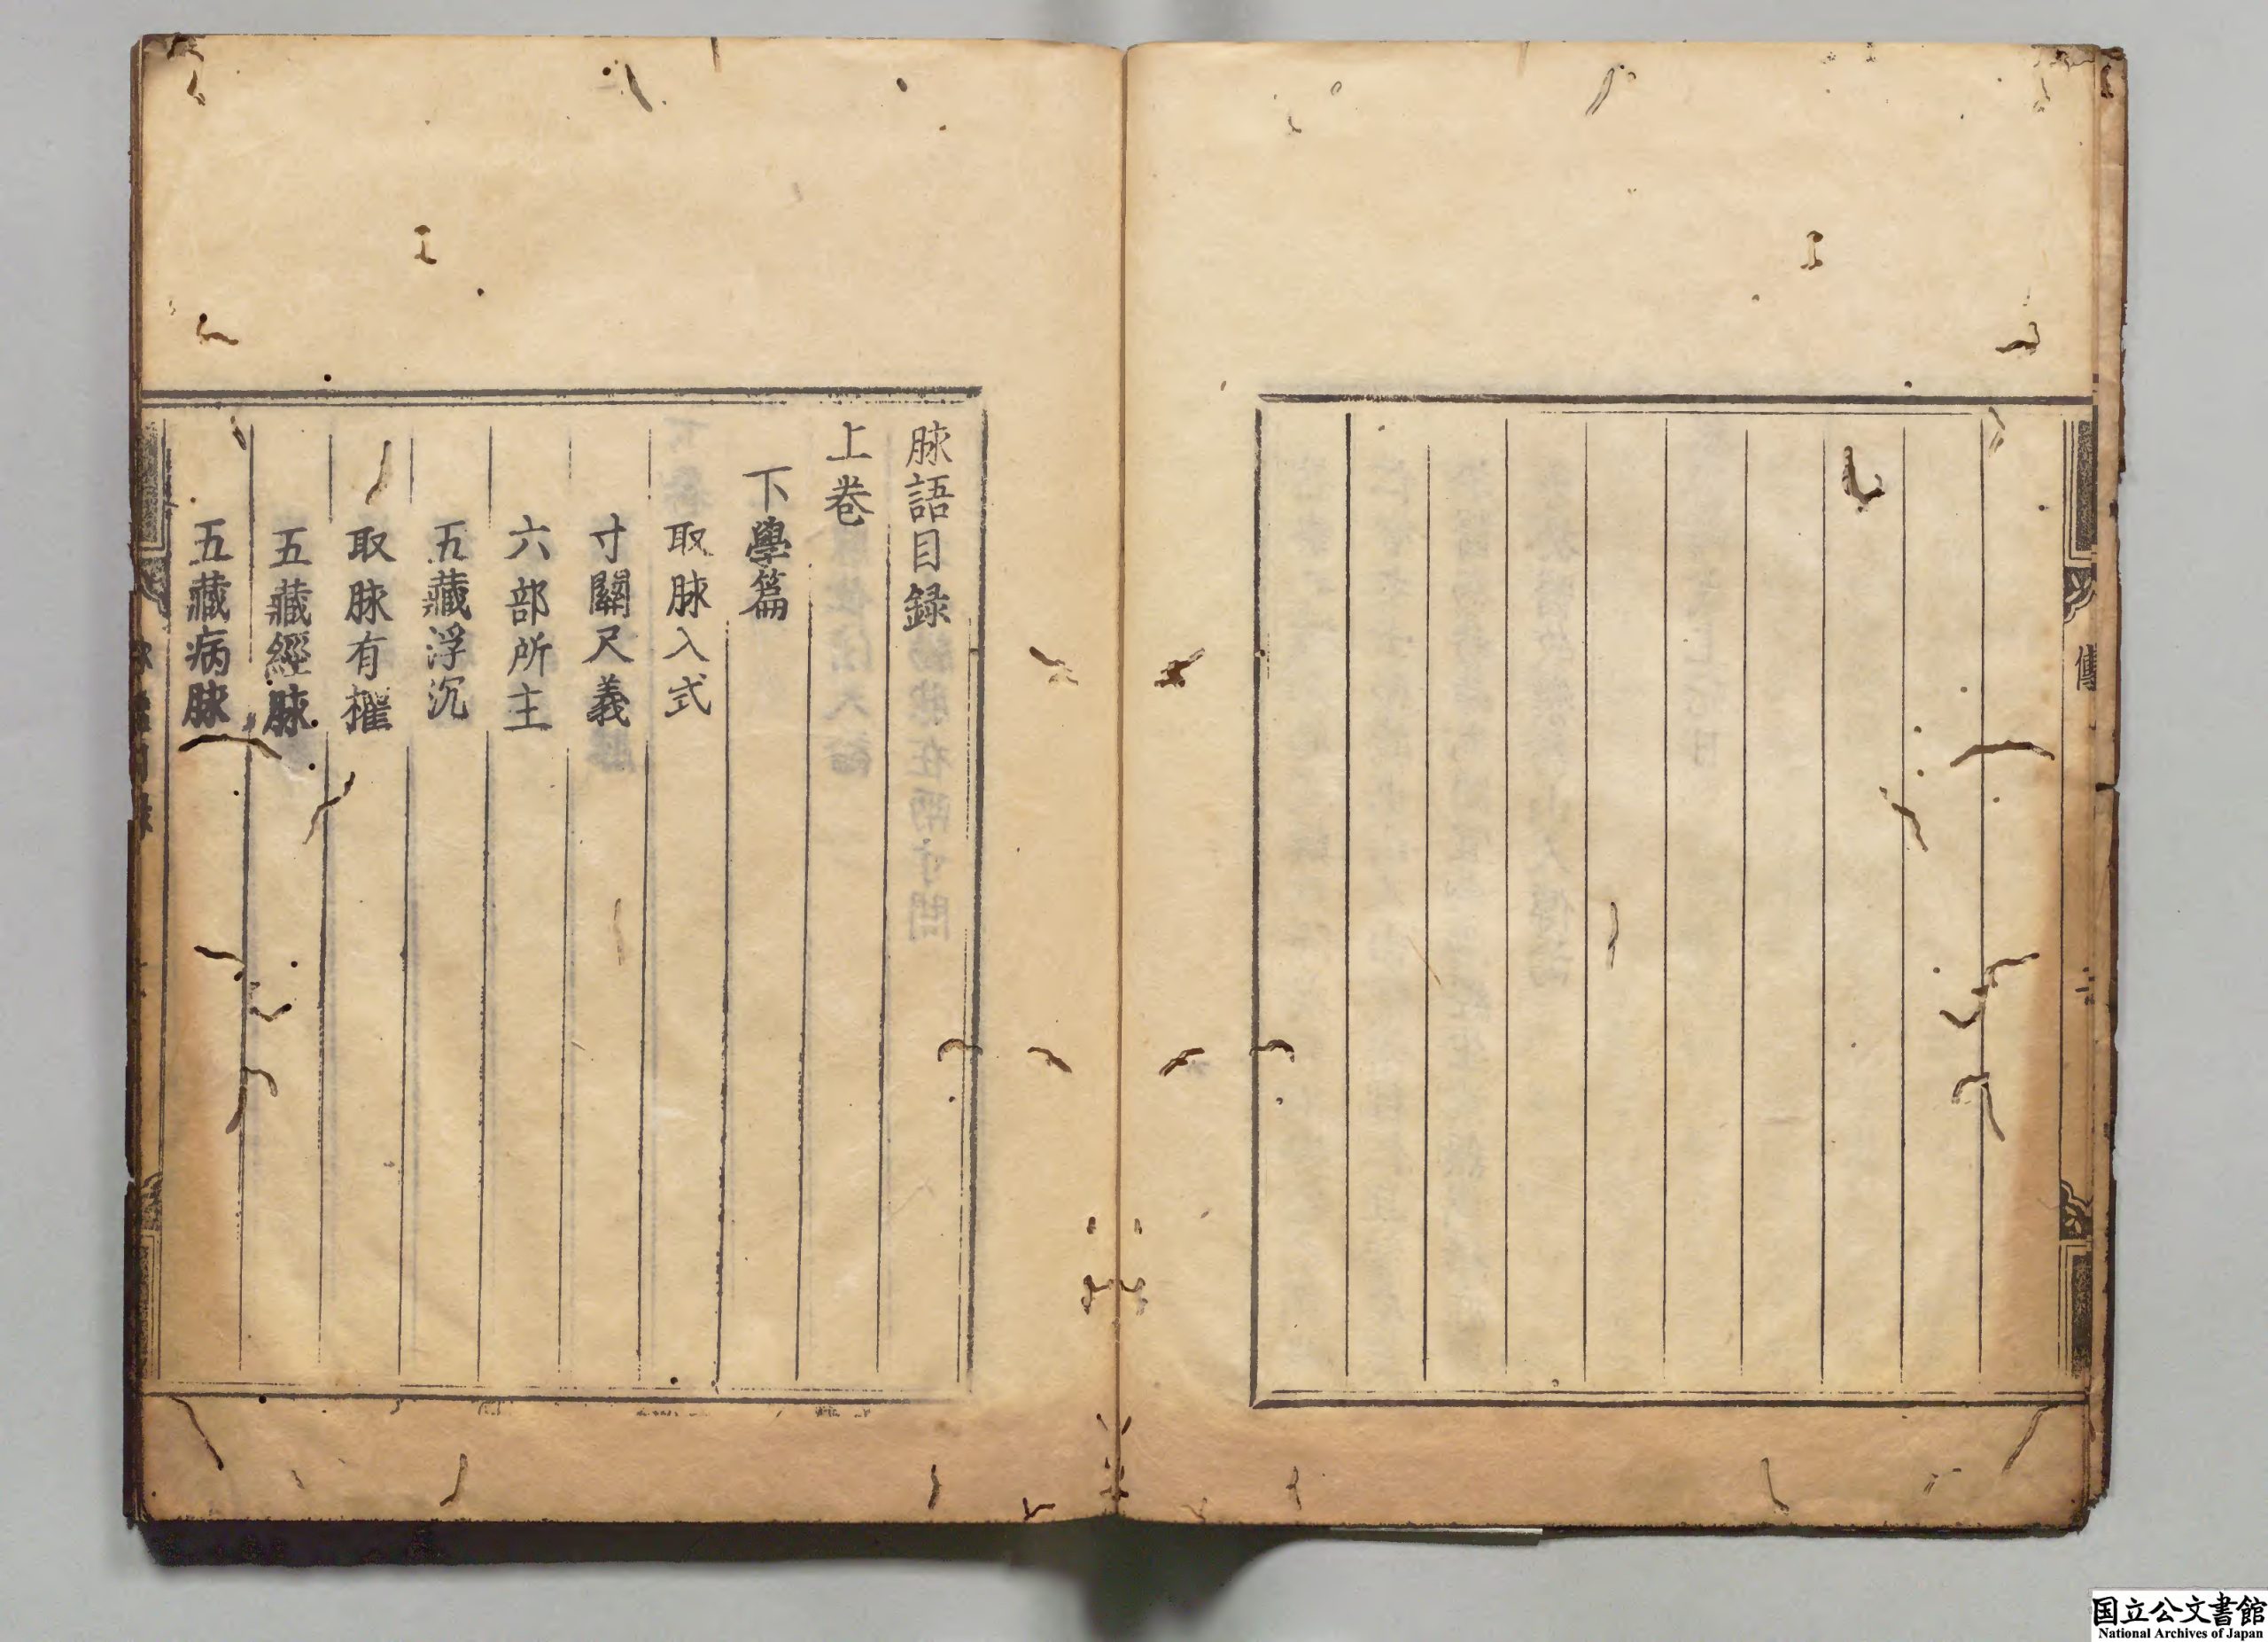 傳
脉語目錄
上卷
下學篇
取脉入式
寸關尺義
六部所主
五藏浮沉
取脉有權
五藏經脉
五藏病脉
国立公文書館
National Archives of Japan